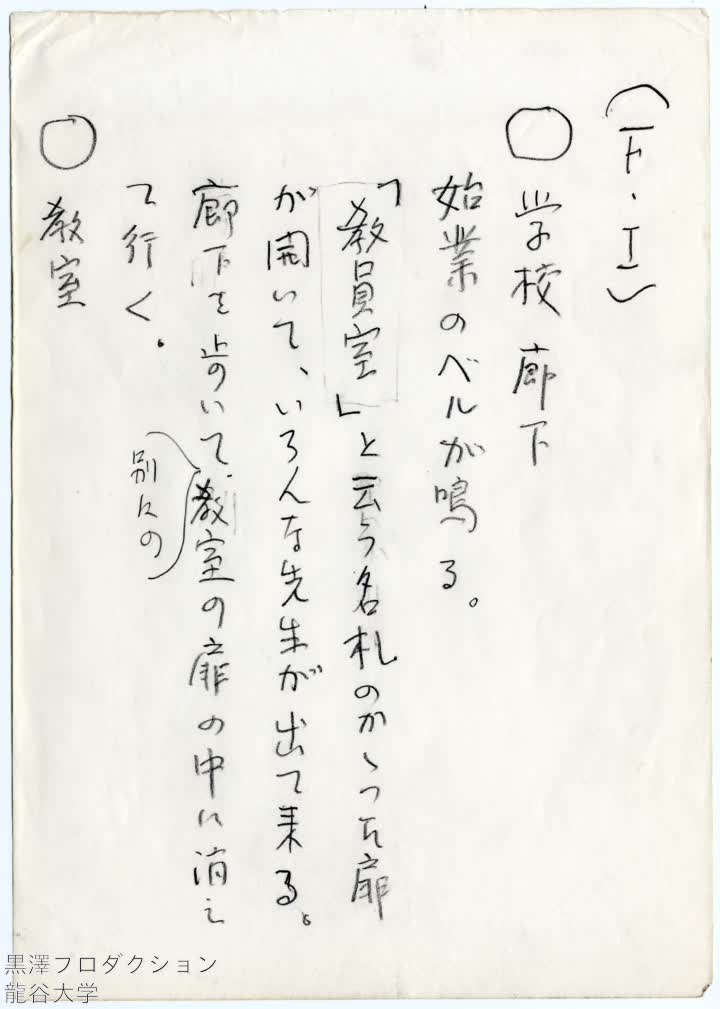 (F・I)
○ 学校 廊下
始業のベルが鳴る。
「教員室」と云う名札のかゝった扉
が開いて、いろんな先生が出て来る。
廊下を歩いて、教室の扉の中に消え
別々の
て行く。
○ 教室
黒澤プロダクション
龍谷大学